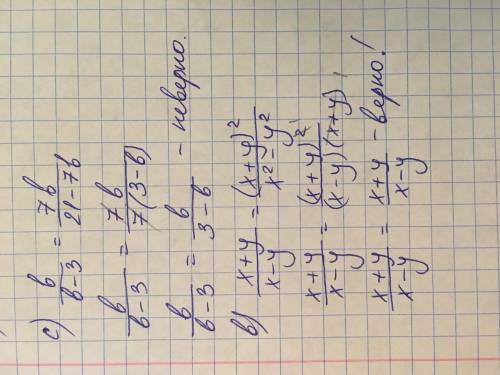 с) b/b-3 = 7b/21-7b
b/b-3 = 7b/7(3-b)
b/b-3 = b/3-b - неверно.
в) x+y/x-y = (x+y)²/x²-y²
x+y/x-y = (x+y)²/(x-y)(x+y)
x+y/x-y = x+y/x-y - верно!